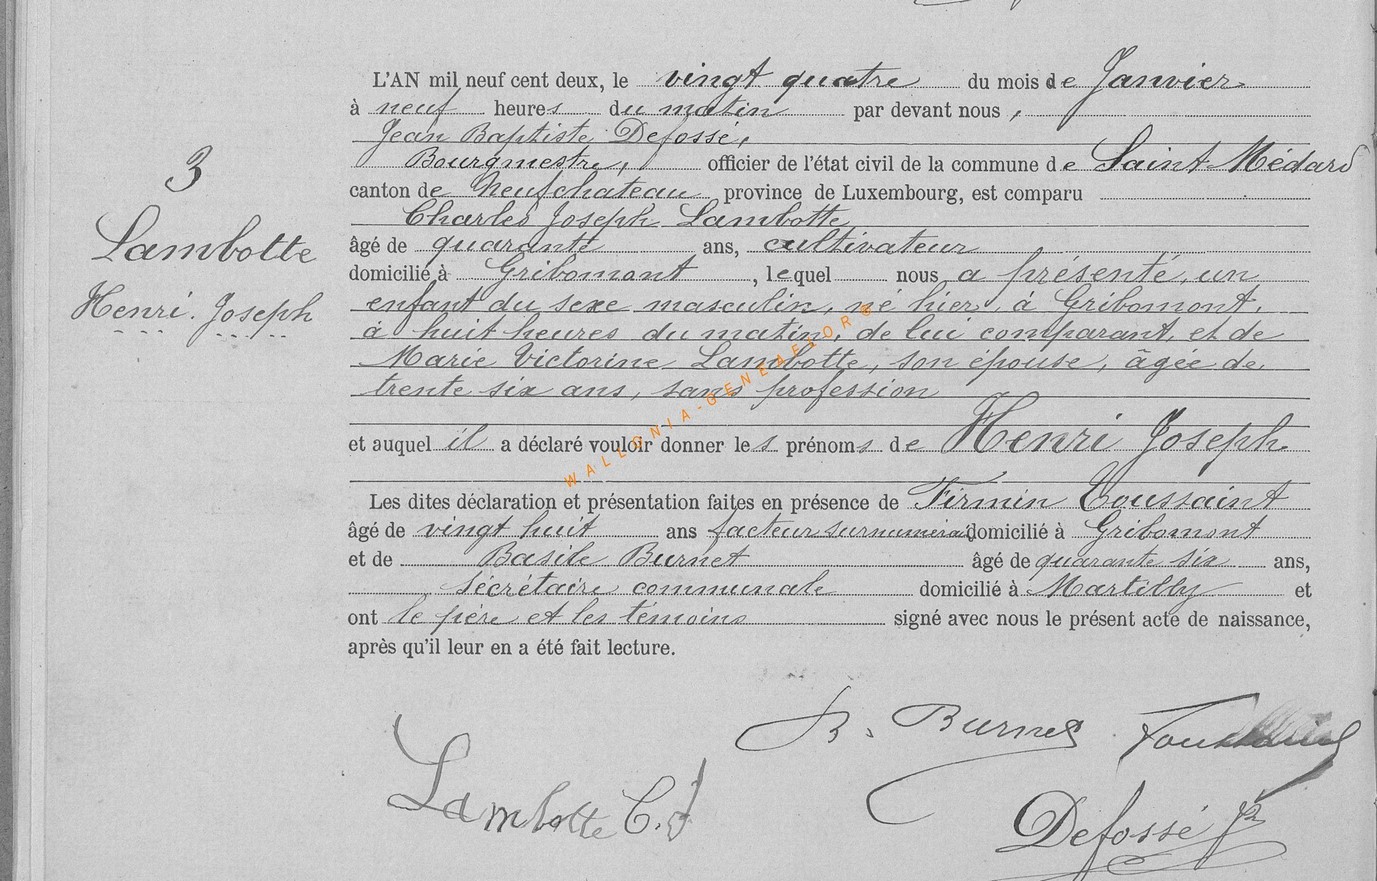 3
Lambotte
Henri. Joseph
L'AN mil neuf cent deux, le vingt quatre du mois de Janvier
à neuf heures du matin par devant nous,
Jean Baptiste Defossé,
Bourgmestre, officier de l'état civil de la commune de Saint-Médard
canton de Neufchateau province de Luxembourg, est comparu
Charles Joseph Lambotte
âgé de quarante ans, cultivateur
domicilié à Gribomont, lequel nous a présenté, un
enfant du sexe masculin, né hier, à Gribomont,
à huit heures du matin, de lui comparant, et de
Marie Victorine Lambotte, son épouse, âgée de
trente six ans, sans profession
et auquel il a déclaré vouloir donner les prénoms de Henri Joseph
Les dites déclaration et présentation faites en présence de Firmin Toussaint
âgé de vingt huit ans facteur surnumérai domicilié à Gribomont
et de Basile Burnet âgé de quarante six ans,
sécrétaire communale domicilié à Martilly et
ont le père et les témoins signé avec nous le présent acte de naissance,
après qu'il leur en a été fait lecture.
B. Burnet Toussaint
Lambotte C. J
Defossé
WALLONIA-GENEAFLOR©